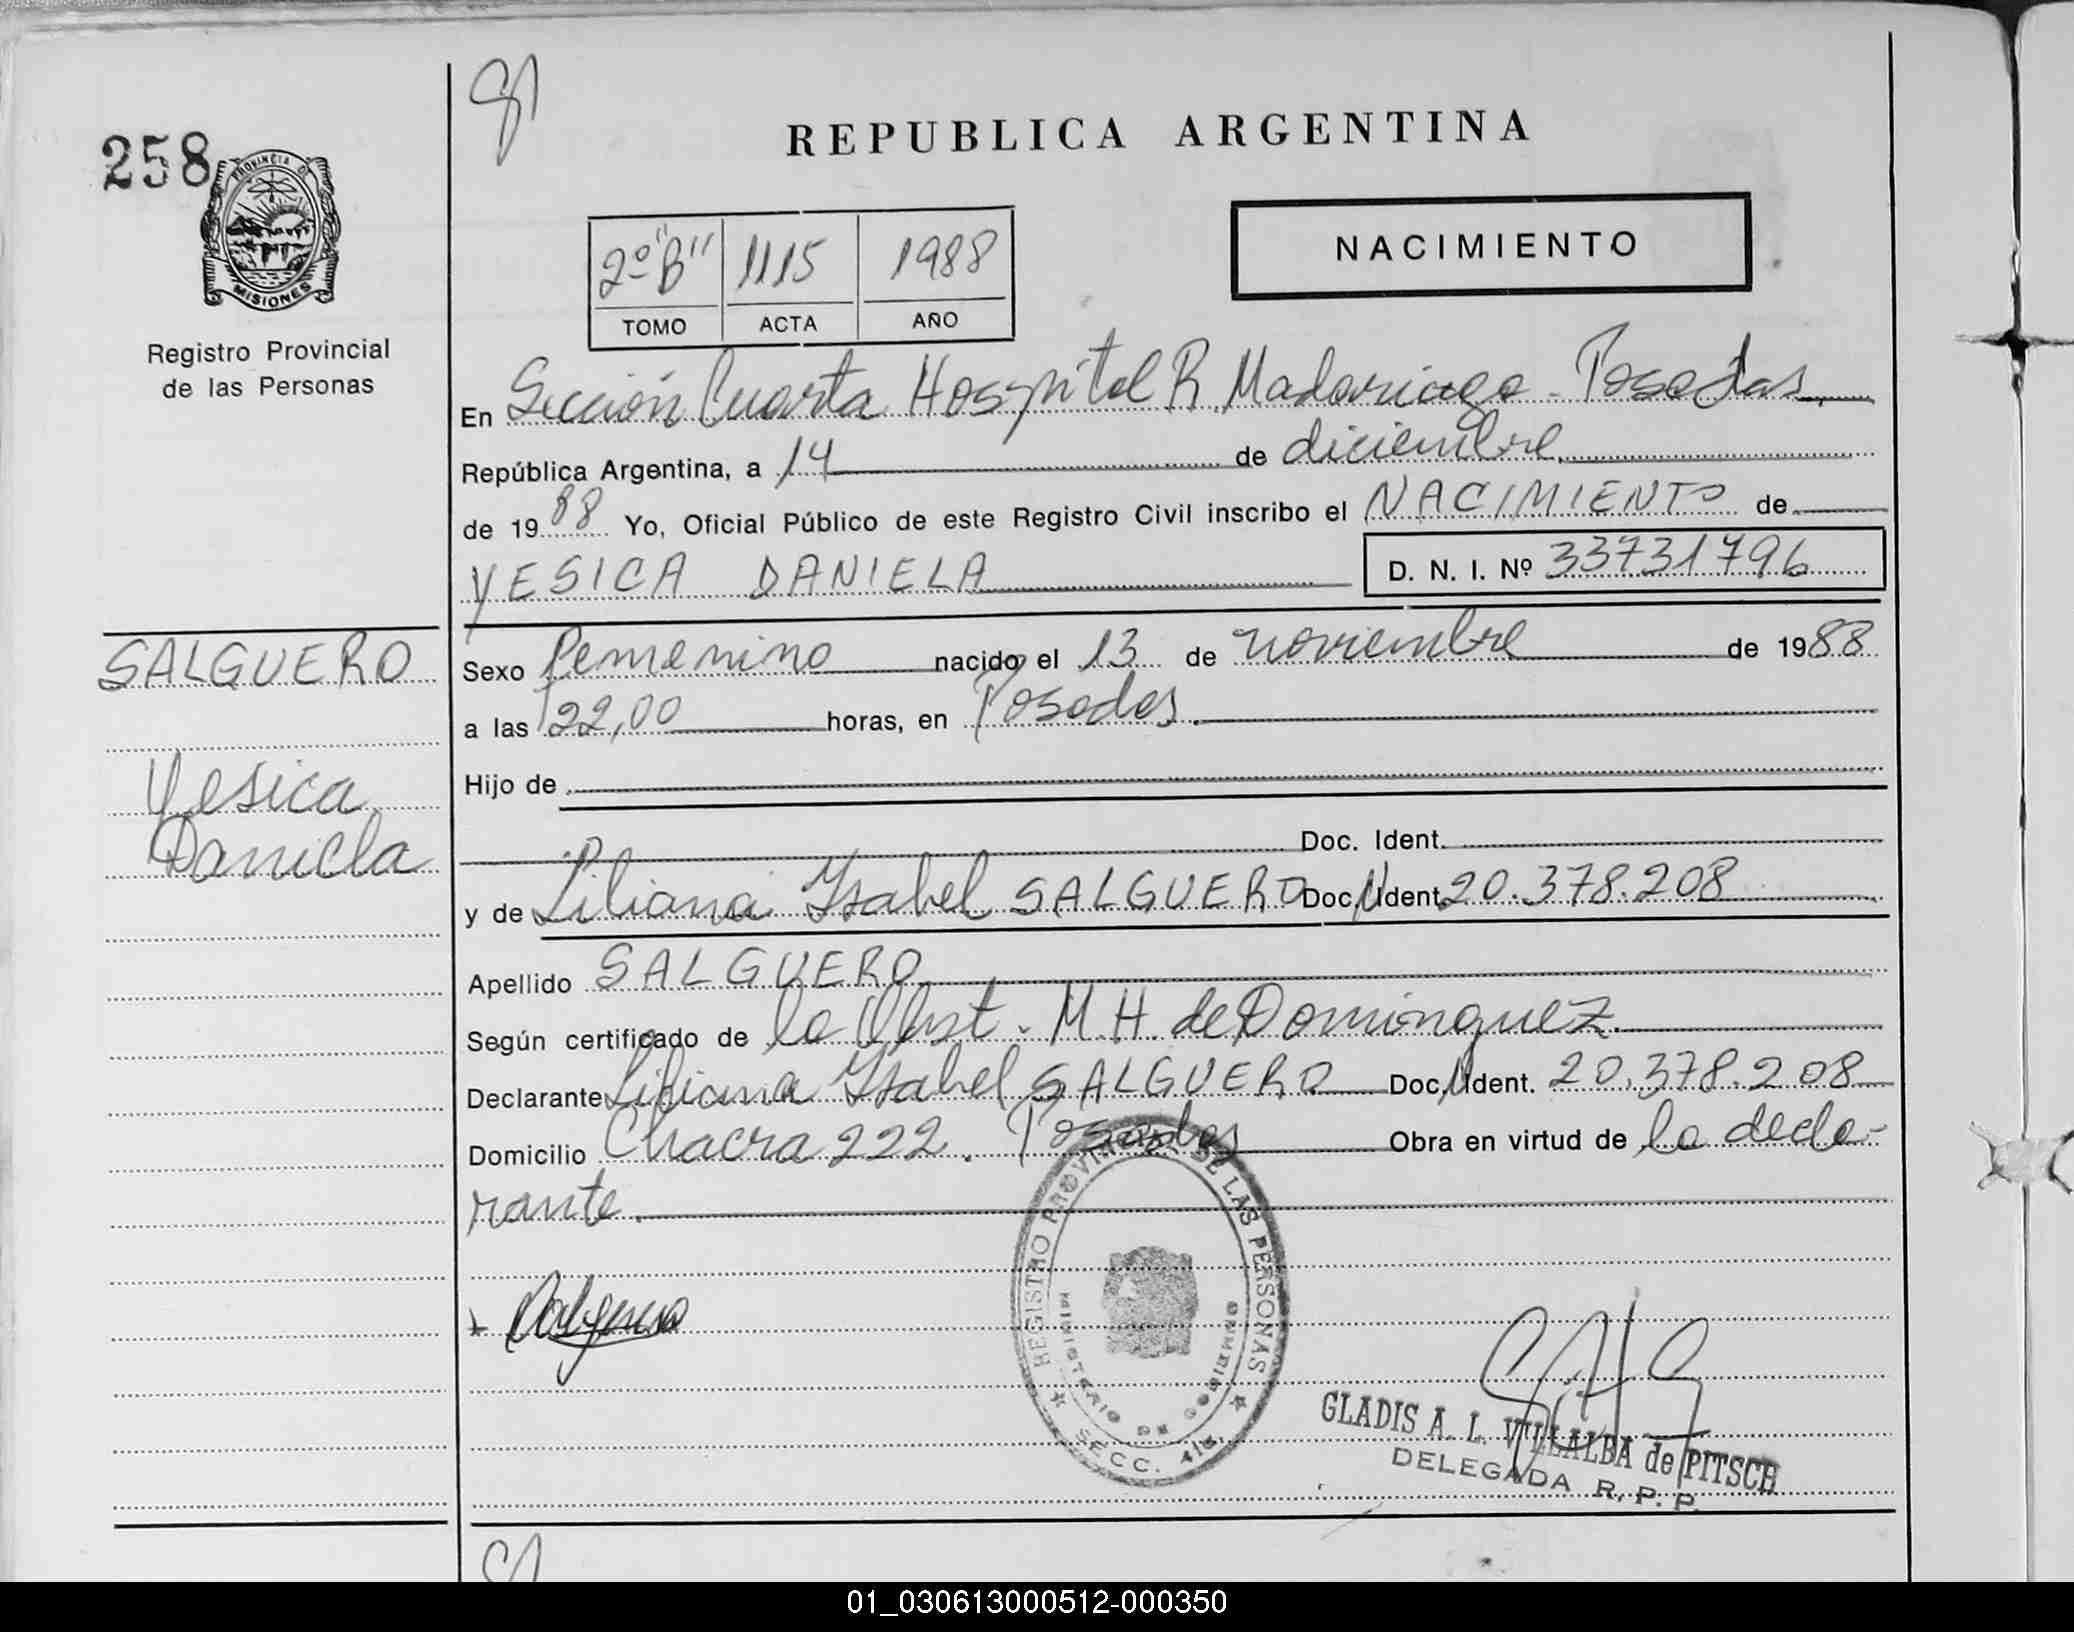 258
PROVINCIA DE
MISIONES
Registro Provincial
de las Personas
SALGUERO
Yesica
Daniela
REPUBLICA ARGENTINA
2º "B" 1115 1988
TOMO ACTA AÑO
NACIMIENTO
En Sección Cuarta Hospital R. Madariaga - Posadas.
República Argentina, a 14 de diciembre
de 1988 Yo, Oficial Público de este Registro Civil inscribo el NACIMIENTO de
YESICA DANIELA D. N. I. Nº 33731796
Sexo femenino nacido el 13 de noviembre de 1988
a las 22,00 horas, en Posadas.
Hijo de
Doc. Ident.
y de Liliana Ysabel SALGUERO Doc. Ident. 20.378.208
Apellido SALGUERO
Según certificado de la Obst. M. H. de Dominguez
Declarante Liliana Ysabel SALGUERO Doc. Ident. 20.378.208
Domicilio Chacra 222. Posadas Obra en virtud de la decla-
rante.
REGISTRO PROVINCIAL DE LAS PERSONAS
MINISTERIO DE GOBIERNO
SECC. 4ta.
GLADIS A. L. VILLALBA de PITSCH
DELEGADA R. P. P.
01_030613000512-000350